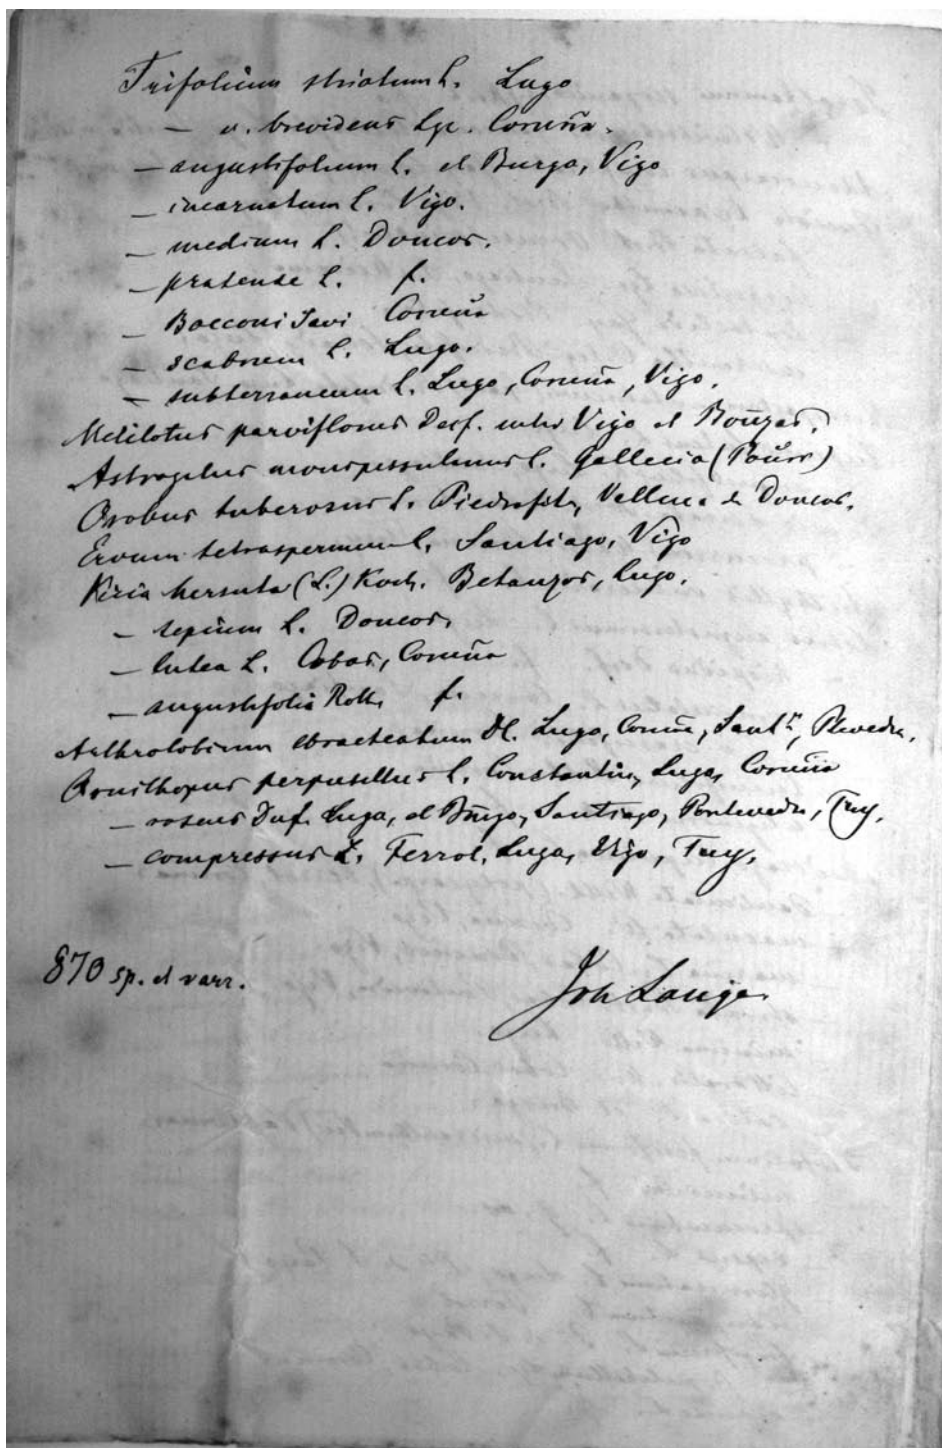 Trifolium striatum L. Lugo
— v. brevidens Lge. Coruña.
— angustifolium L. el Burgo, Vigo
— incarnatum L. Vigo.
— medium L. Doncos.
— pratense L. f.
— Bocconi Savi Coruña
— scabrum L. Lugo.
— subterraneum L. Lugo, Coruña, Vigo.
Melilotus parviflorus Desf. inter Vigo et Bouzas.
Astragalus monspessulanus L. Gallecia (Pourr)
Orobus tuberosus L. Piedrafita, Doncos.
Ervum tetraspermum L. Santiago, Vigo
Vicia hirsuta (L.) Koch. Betanzos, Lugo.
— sepium L. Doncos.
— lutea L. Cobas, Coruña
— angustifolia Roth f.
Arthrolobium ebracteatum DC. Lugo, Coruñ, Santº, Ptevedra.
Ornithopus perpusillus L. Constantin, Lugo, Coruña
— roseus Duf. Lugo, el Burgo, Santiago, Pontevedra, Tuy.
— compressus L. Ferrol, Lugo, Vigo, Tuy.
870 sp. et varr.
Joh Lange